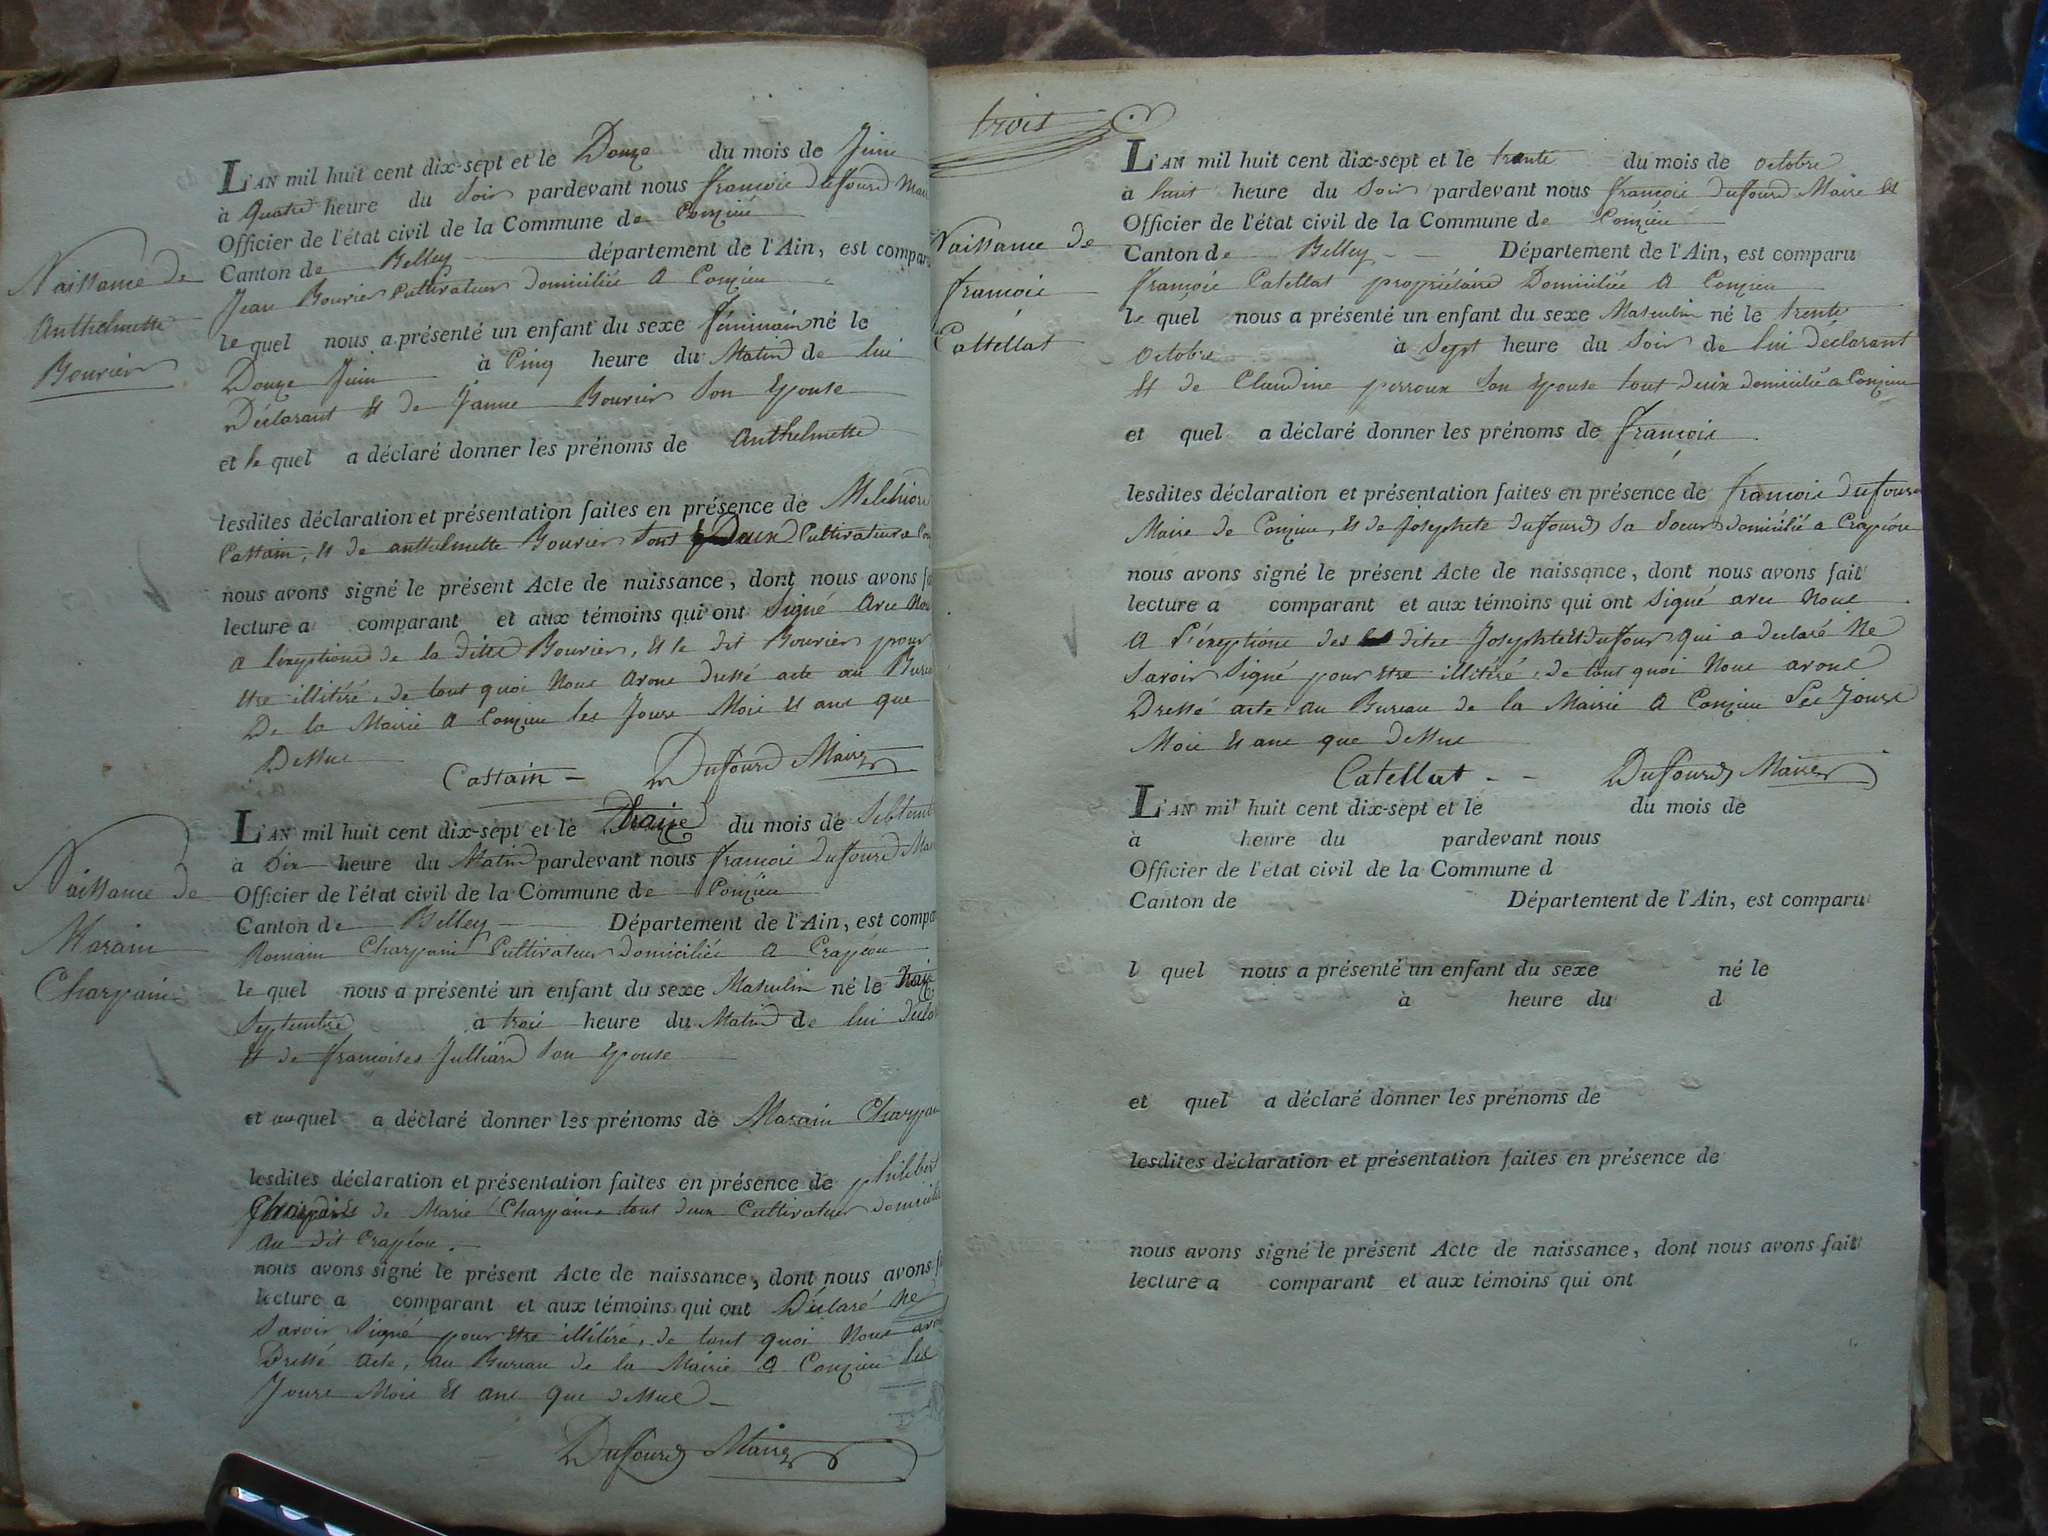 Naissance de
Anthelmette
Bouvier
L'AN mil huit cent dix-sept et le Douze du mois de Juin
à quatre heure du Soir pardevant nous françois duffourd Mai
Officier de l'état civil de la Commune de Conzieu
Canton de Belley département de l'Ain, est compar
Jean Bouvier Cultivateur domiciliée a Conzieu
le quel nous a présenté un enfant du sexe féminain né le
Douze Juin à Cinq heure du Matin de lui
Déclarant et de Janne Bouvier Son Epouse
et le quel a déclaré donner les prénoms de Anthelmette
lesdites déclaration et présentation faites en présence de Melchiord
Castain, et de anthelmette Bouvier tout Deux Cultivateur a Con
nous avons signé le présent Acte de naissance, dont nous avons f
lecture a comparant et aux témoins qui ont Signé avec Nous
a l'exeptione de la ditte Bouvier, et le dit Bouvier pour
etre illitéré, de tout quoi Nous avons dressé acte au Bure
De la Mairie a Conzieu les Jours Mois et ans que
Dessus
Castain Duffourd Maire
Naissance de
Marain
Charpain
L'AN mil huit cent dix-sept et le Traize du mois de Sebtem
a Dix heure du Matin pardevant nous françois duffourd Ma
Officier de l'état civil de la Commune de Conzieu
Canton de Belley Département de l'Ain, est compa
Romain Charpain Cultivateur domiciliée a Crapéou
le quel nous a présenté un enfant du sexe Masculin né le traize
Septembre à trois heure du Matin de lui decla
et de françoises Julliard Son Epouse
et au quel a déclaré donner les prénoms de Marain Charpain
lesdites déclaration et présentation faites en présence de philibert
Charpain et de Marie Charpain tout deux Cultivateur domicilié
au dit Crapéou.
nous avons signé le présent Acte de naissance, dont nous avons f
lecture a comparant et aux témoins qui ont Déclaré Ne
Savoir Signé pour etre illitéré, de tout quoi Nous avon
Dressé acte, au Bureau de la Mairie a Conzieu les
Jours Mois et ans que dessus
Duffourd Maire
trois
Naissance de
françois
Cattellat
L'AN mil huit cent dix-sept et le trente du mois de octobre
à huit heure du Soir pardevant nous françois duffourd Maire et
Officier de l'état civil de la Commune de Conzieu
Canton de Belley Département de l'Ain, est comparu
françois Catellat propriétaire Domiciliée a Conzieu
le quel nous a présenté un enfant du sexe Masculin né le trente
octobre à Sept heure du Soir de lui déclarant
et de Claudine perroux Son Epouse tout deux domicilié a Conzieu
et quel a déclaré donner les prénoms de françois
lesdites déclaration et présentation faites en présence de françois duffourd
Maire de Conzieu, et de Josephete duffourd Sa Soeur domicilié a Crapéou
nous avons signé le présent Acte de naissance, dont nous avons fait
lecture a comparant et aux témoins qui ont Signé avec Nous
a l'exeptione des dites Josephte duffour qui a declaré Ne
Savoir Signé pour etre illitéré, de tout quoi Nous avons
Dressé acte au Bureau de la Mairie a Conzieu Les Jours
Mois et ans que dessus
Catellat Duffourd Maire
L'AN mil huit cent dix-sept et le du mois de
à heure du pardevant nous
Officier de l'état civil de la Commune d
Canton de Département de l'Ain, est comparu
l quel nous a présenté un enfant du sexe né le
à heure du d
et quel a déclaré donner les prénoms de
lesdites déclaration et présentation faites en présence de
nous avons signé le présent Acte de naissance, dont nous avons fait
lecture a comparant et aux témoins qui ont